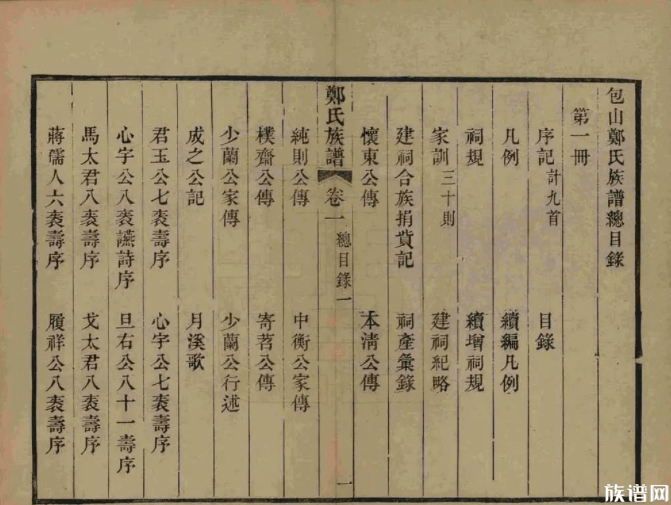 包山鄭氏族譜總目錄
第一冊
序記計九首 目錄
凡例 續編凡例
祠規 續增祠規
家訓三十則 建祠紀略
建祠合族捐貲記 祠產彙錄
懷東公傳 本清公傳
鄭氏族譜 卷一 總目錄一 一
純則公傳 中衡公家傳
樸齋公傳 寄茗公傳
少蘭公家傳 少蘭公行述
成之公記 月溪歌
君玉公七袠壽序 心字公七袠壽序
心字公八袠讌詩序 旦右公八十一壽序
馬太君八袠壽序 戈太君八袠壽序
蔣孺人六袠壽序 履祥公八袠壽序
族谱网